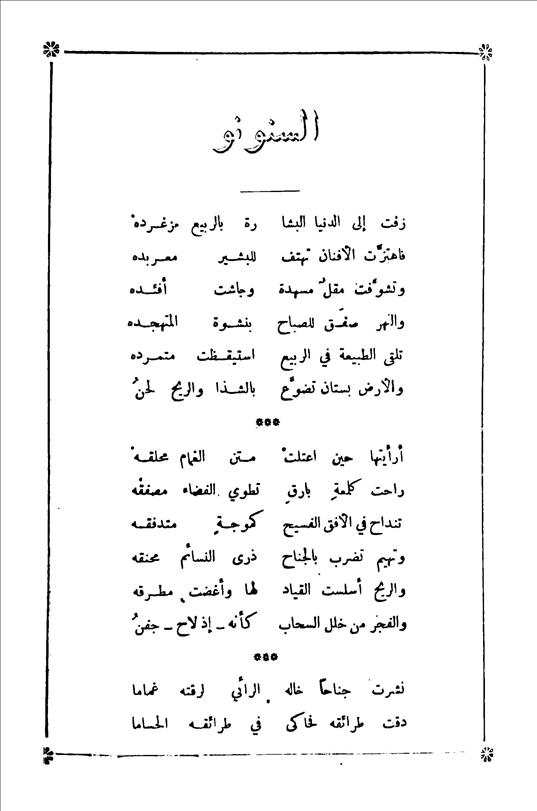 السنونو
زفت إلى الدنيا البشا رة بالربيع مزغردهْ
فاهتزَّت الأفنان تهتف للبشير معربده
وتشوَّفت مقلٌ مسهدة وجاشت أفئده
والنهر صفَّق للصباح بنشوة المتهجده
تلقى الطبيعة في الربيع استيقظت متمرده
والأرض بستان تضوَّع بالشذا والريح لحنُ
***
أرأيتها حين اعتلتْ متن الغمام محلقهْ
راحت كلمعةِ بارقٍ تطوي الفضاء مصفقْه
تنداح في الأفق الفسيح كموجةٍ متدفقه
وتهيم تضرب بالجناح ذرى النسائم محنقه
والريح أسلست القياد لها وأغضت مطرقه
والفجر من خلل السحاب كأنه ـ إذ لاح ـ جفنُ
***
نشرت جناحاً خاله الرائي لرقته غماما
دقت طرائقه فحاكى في طرائقه الحساما